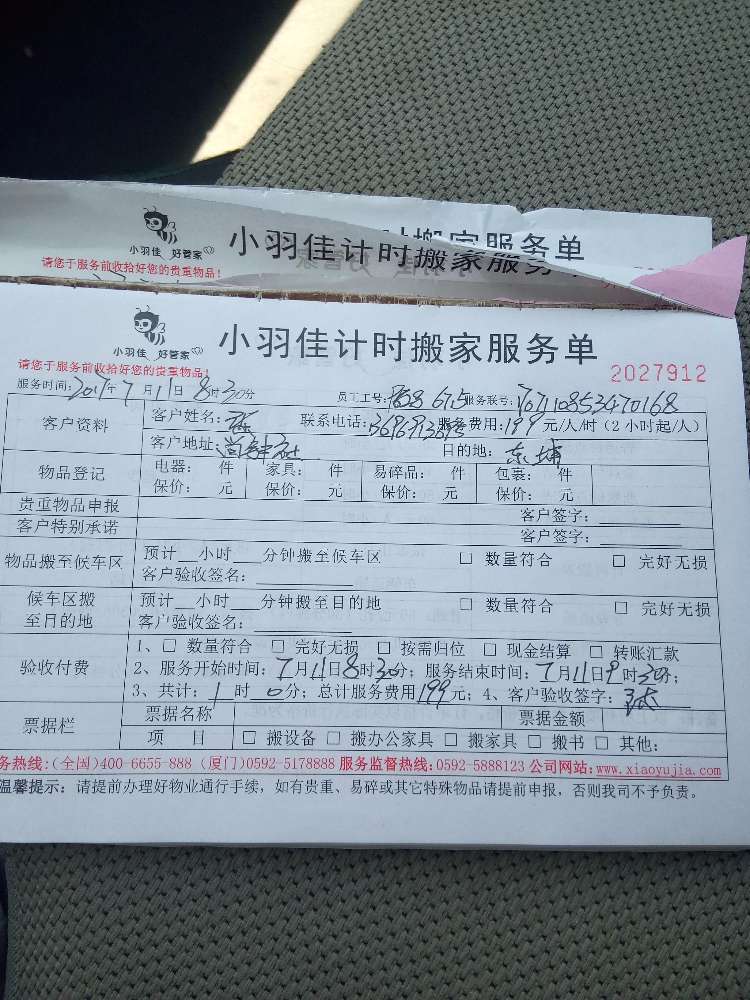 小羽佳 好管家
小羽佳计时搬家服务单
请您于服务前收拾好您的贵重物品!
小羽佳 好管家
小羽佳计时搬家服务单
请您于服务前收拾好您的贵重物品!
2027912
服务时间: 2017年7月11日8时30分 员工工号: 服务联号:
客户资料 客户姓名:张 联系电话: 服务费用:199元/人/时(2小时起/人)
客户地址: 目的地:东埔
物品登记 电器: 件 家具: 件 易碎品: 件 包裹: 件
保价: 元 保价: 元 保价: 元 保价: 元
贵重物品申报 客户签字:
客户特别承诺 客户签字:
物品搬至候车区 预计__小时___分钟搬至候车区 □ 数量符合 □ 完好无损
客户验收签名:
候车区搬至目的地 预计__小时___分钟搬至目的地 □ 数量符合 □ 完好无损
客户验收签名:
验收付费 1、□ 数量符合 □ 完好无损 □ 按需归位 □ 现金结算 □ 转账汇款
2、服务开始时间:7月11日8时30分; 服务结束时间:7月11日9时30分;
3、共计:1时0分; 总计服务费用199元; 4、客户验收签字:张
票据栏 票据名称 票据金额
项 目 □ 搬设备 □ 搬办公家具 □ 搬家具 □ 搬书 □ 其他:
务热线:(全国)400-6655-888 (厦门)0592-5178888 服务监督热线:0592-5888123 公司网站:www.xiaoyujia.com
温馨提示: 请提前办理好物业通行手续, 如有贵重、易碎或其它特殊物品请提前申报, 否则我司不予负责。